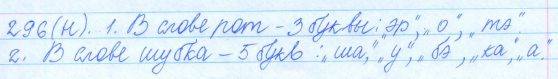 296(н). 1. В слове рот – 3 буквы: „эр", „о", „тэ".
2. В слове шубка – 5 букв: „ша", „у", „бэ", „ка", „а".